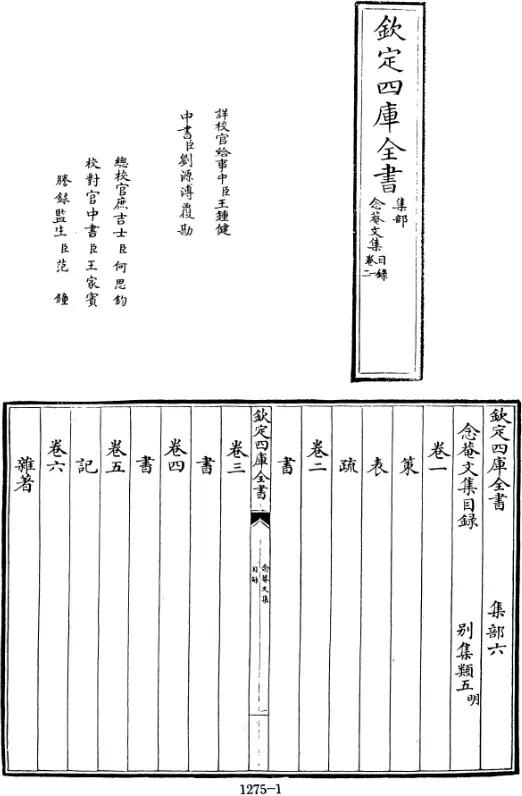 欽定四庫全書
集部
念菴文集
目録
卷一
二
詳校官給事中臣王鍾健
中書臣劉源溥覆勘
總校官庶吉士臣何思鈞
校對官中書臣王家賓
謄録監生臣范鐘
欽定四庫全書　集部六
念菴文集目録　別集類五明
卷一
策
表
疏
卷二
書
欽定四庫全書
念菴文集
目録
一
卷三
書
卷四
書
卷五
記
卷六
雜著
1275-1